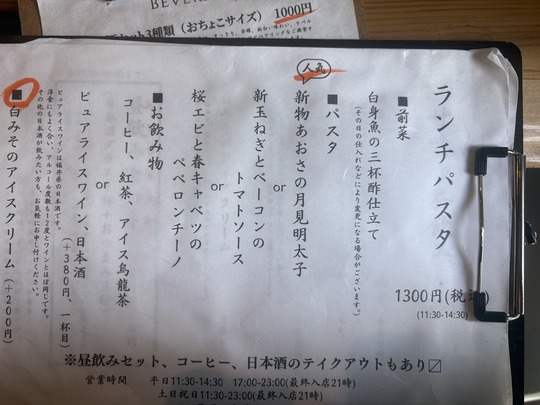 BEVER
3種類（おちょこサイズ） 1000円
ランチパスタ
1300円(税
(11:30-14:30)
■前菜
白身魚の三杯酢仕立て
(その日の仕入れなどにより変更になる場合がございます。)
■パスタ
人気
新物あおさの月見明太子
or
新玉ねぎとベーコンの
トマトソース
or
桜エビと春キャベツの
ペペロンチーノ
■お飲み物
コーヒー、紅茶、アイス烏龍茶
or
ピュアライスワイン、日本酒
(＋380円、一杯目)
ピュアライスワインは福井県の日本酒です。
洋食にもよく合い、アルコール度数も12度とワインとほぼ同じです。
その他の日本酒が飲みたい方も、お気軽にお申し付けください。
■白みそのアイスクリーム (＋200円)
※昼飲みセット、コーヒー、日本酒のテイクアウトもあり〼
営業時間 平日11:30-14:30 17:00-23:00(最終入店21時)
土日祝日11:30-23:00(最終入店21時)